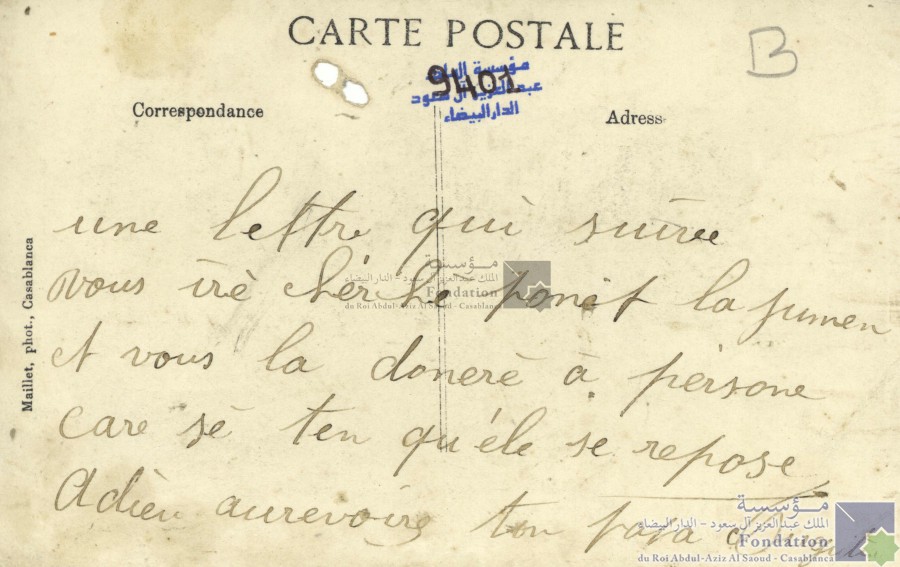 CARTE POSTALE
B
مؤسسة الملك
9401
عبد العزيز آل سعود
الدار البيضاء
Correspondance
Adress
Maillet, phot., Casablanca
une lettre qui suivre
vous irè chérche la jumen
et vous la donerè à pèrsone
care sè ten qu'éle se repose
Adieu aurevoire ton papa
مؤسسة
الملك عبد العزيز آل سعود - الدار البيضاء
Fondation
du Roi Abdul-Aziz Al Saoud - Casablanca
مؤسسة
الملك عبد العزيز آل سعود - الدار البيضاء
Fondation
du Roi Abdul-Aziz Al Saoud - Casablanca